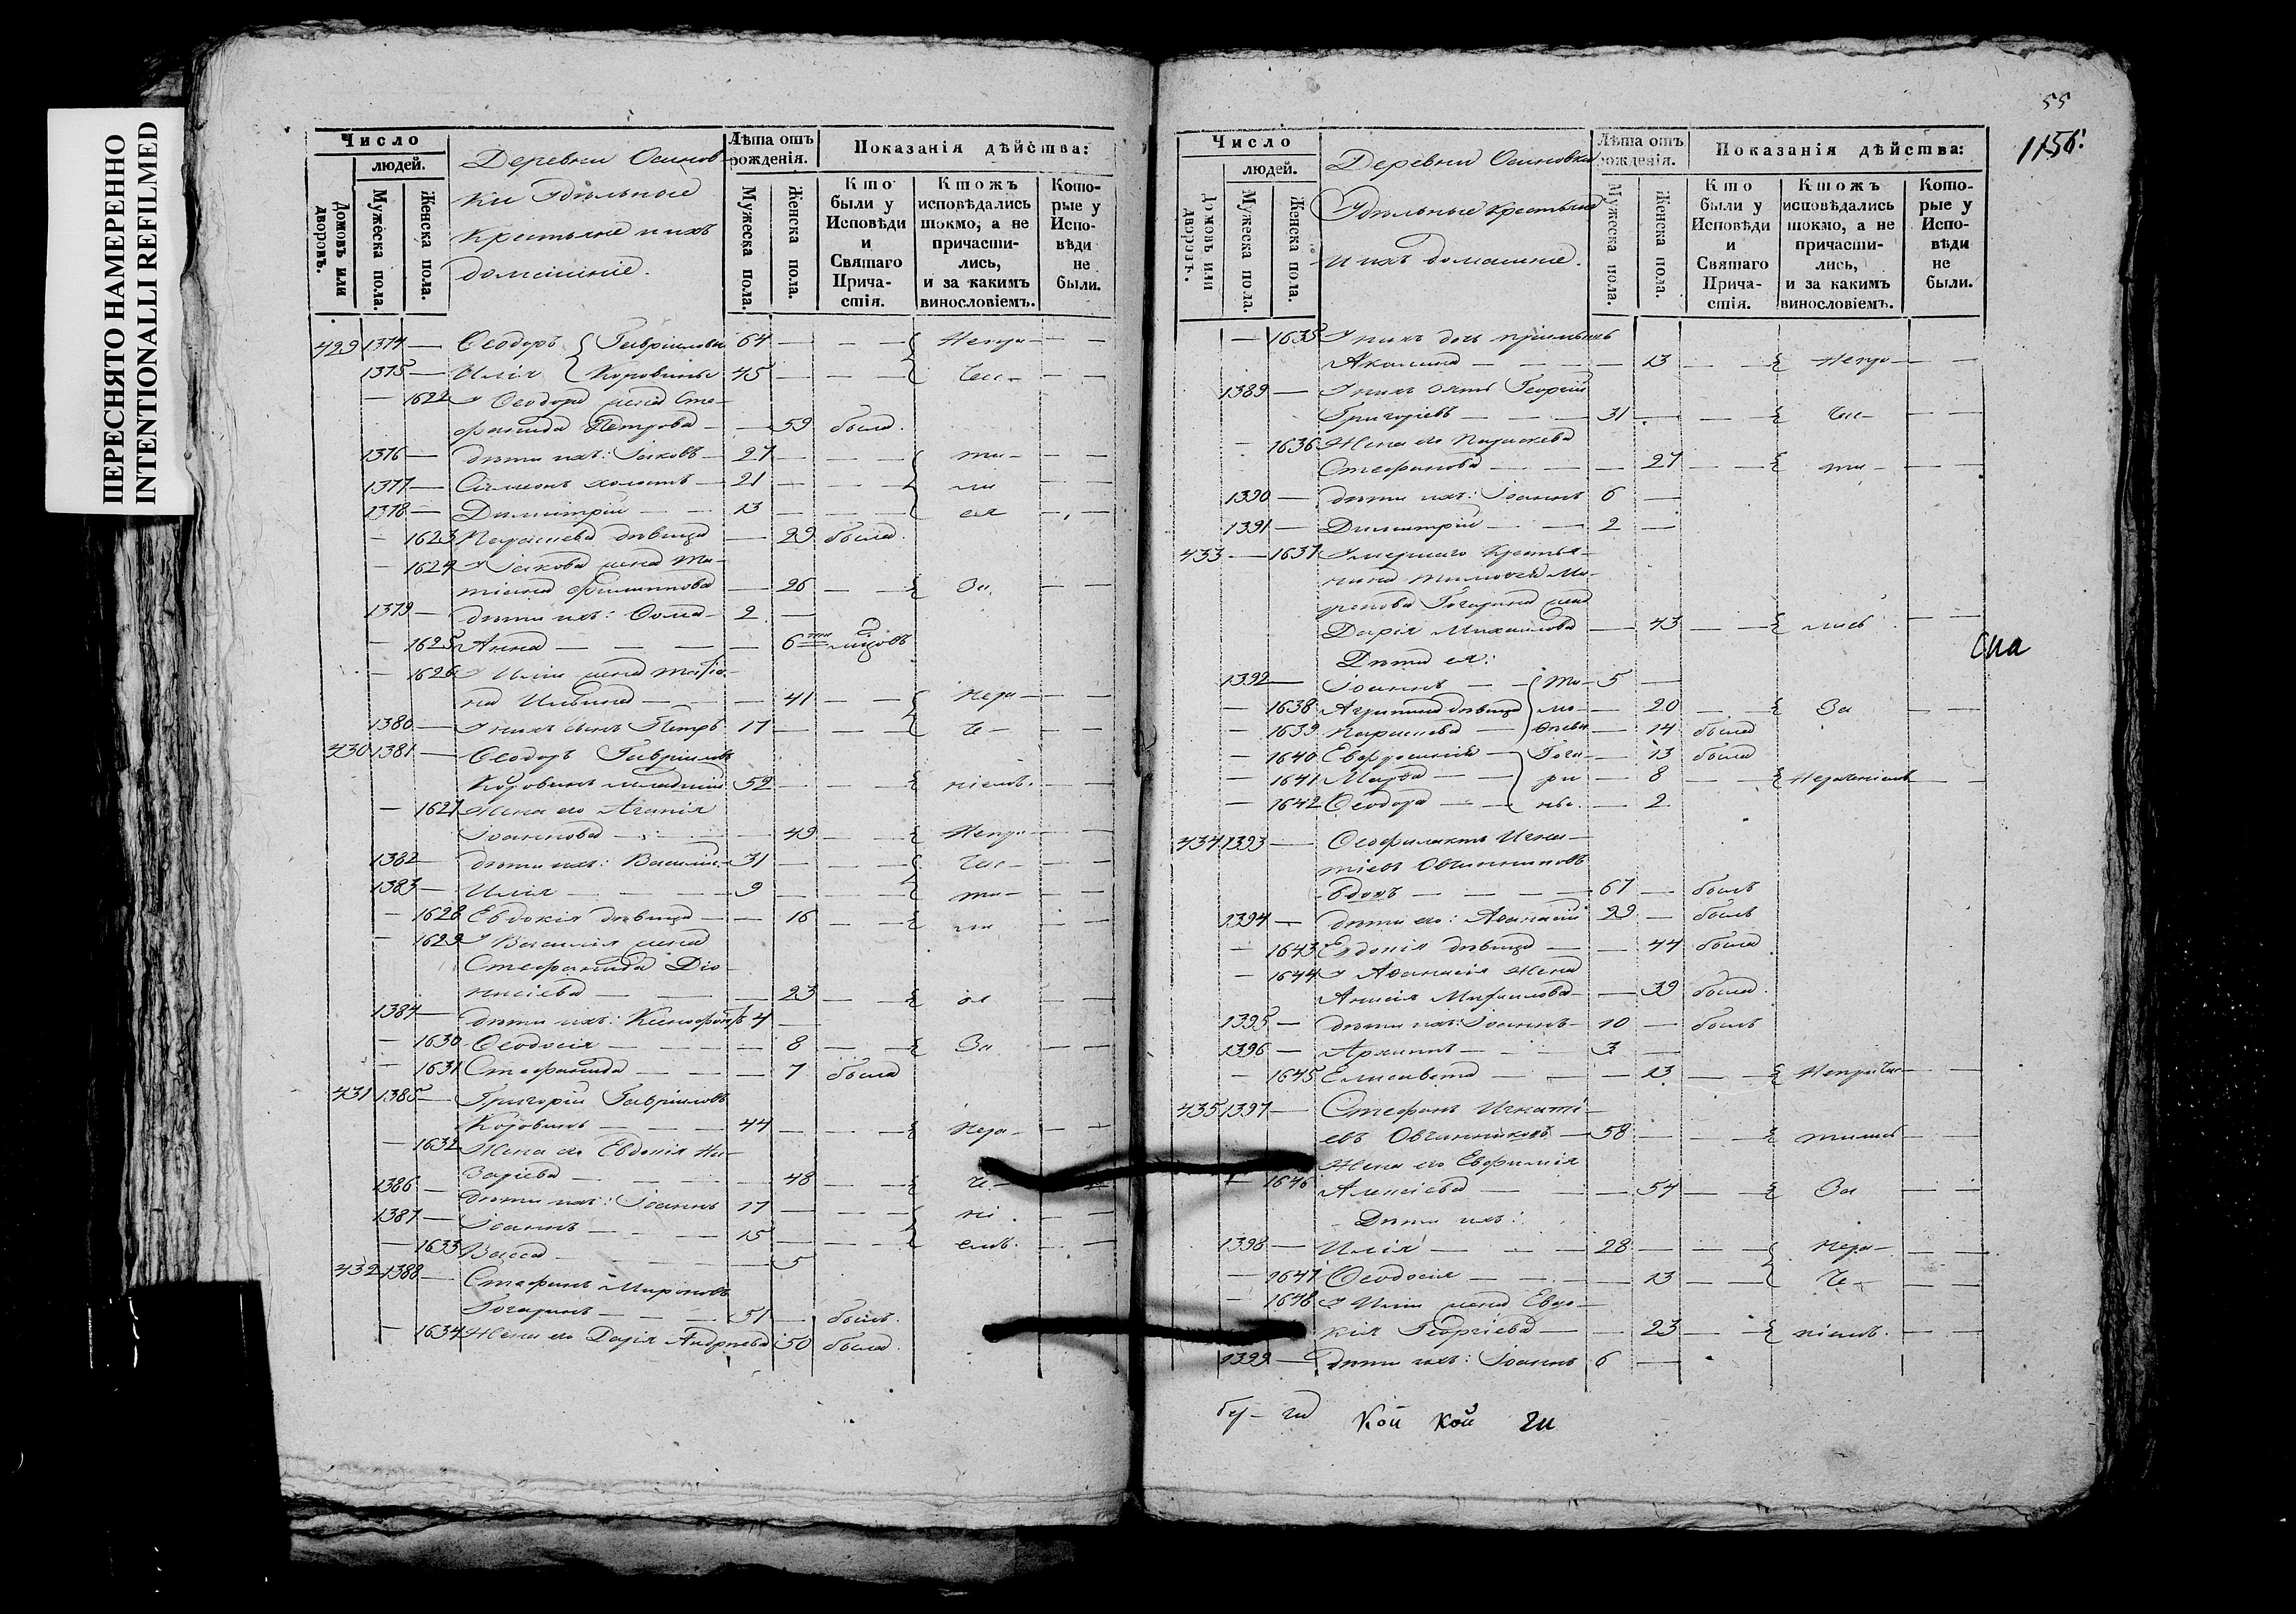 ПЕРЕСНЯТО НАМЕРЕННО
INTENTIONALLI REFILMED
Число
людей.
Домовъ или дворовъ.
Мужеска пола.
Женска пола.
Деревни Осинов-
ки Удѣльные
крестьяне и ихъ
домашніе.
Лѣта отъ рожденія.
Мужеска пола.
Женска пола.
Показанія дѣйства:
Кто были у Исповѣди и Святаго Причастія.
Ктожъ исповѣдались токмо, а не причастились, и за какимъ винословіемъ.
Которые у Исповѣди не были.
429 1374 — Ѳеодоръ Гавріиловы 64 — — — Непри — —
1375 — Илія Коровины 45 — — — час — —
— 1622 У Ѳеодора жена Сте-
фанида Петрова — — 59 была.
1376 — дѣти ихъ: Іаковъ — 27 — — — ти — —
1377 — Симеонъ холостъ — 21 — — — ли — —
1378 — Димитрій — — 13 — — — ся — —
— 1623 Параскева дѣвица — 29 была.
— 1624 У Іакова жена Та-
тіана Филиппова — 26 — — За — —
1379 — дѣти ихъ: Ѳома — 2 —
— 1625 Анна — — — — 6
— 1626 У Иліи жена Татіа-
на Ильина — — — 41 — — нера — —
1380 — У нихъ сынъ Петръ 17 — — — че — —
430 1381 — Ѳеодоръ Гавріиловъ
Коровинъ младшій 52 — — — ніемъ. — —
— 1627 Жена его Агапія
Іоаннова — — — 49 — — Непри — —
1382 — дѣти ихъ: Василій — 31 — — — час — —
1383 — Илія — — — 9 — — — ти — —
— 1628 Евдокія дѣвица — — 16 — — ли — —
— 1629 У Василія жена
Стефанида Діо-
нисіева — — — 23 — — ся — —
1384 — дѣти ихъ: Ксенофонтъ 4 —
— 1630 Ѳеодосія — — — 8 — — За — —
— 1631 Стефанида — — — 7 была
431 1385 — Григорій Гавріиловъ
Коровинъ — — — 44 — — — нера — —
— 1632 Жена его Евдокія На-
заріева — — — 48 — — че — —
1386 — дѣти ихъ: Іоаннъ 17 — — — ні — —
1387 — Іоаннъ — — — 15 — — — емъ. — —
— 1633 Васса — — — 5
432 1388 — Стефанъ Мироновъ
Гогаринъ — — — 51 — былъ.
— 1634 Жена его Дарія Андреева 50 была.
55
1156.
Число
людей.
Домовъ или дворовъ.
Мужеска пола.
Женска пола.
Деревни Осиновки
Удѣльные крестьяне
и ихъ домашніе.
Лѣта отъ рожденія.
Мужеска пола.
Женска пола.
Показанія дѣйства:
Кто были у Исповѣди и Святаго Причастія.
Ктожъ исповѣдались токмо, а не причастились, и за какимъ винословіемъ.
Которые у Исповѣди не были.
— 1635 У нихъ дочь пріемышъ
Акилина — — — 13 — — Непри — —
1389 — У нихъ зять Георгій
Григоріевъ — — — 31 — — — час — —
— 1636 Жена его Параскева
Стефанова — — — 27 — — ти — —
1390 — дѣти ихъ: Іоаннъ 6 —
1391 — Димитрій — — 2 —
433 — 1637 Умершаго крестья-
нина Тимоѳея Ми-
ронова Гогарина жена
Дарія Михаилова — 43 — — лись — —
Дѣти ея:
1392 — Іоаннъ — — Ти — 5 —
— 1638 Агрипина дѣвица мо — 20 — — За — —
— 1639 Параскева — ѳеевы — 14 была
— 1640 Евфросинія — Гога — 13 была
— 1641 Марѳа — — ри — 8 — — Нераченіемъ — —
— 1642 Ѳеодора — — ны. — 2.
434 1393 — Ѳеофилактъ Игна-
тіевъ Овчинниковъ
вдовъ — — — 67 — былъ
1394 — дѣти его: Аѳанасій 29 — былъ
— 1643 Евдокія дѣвица — — 44 была
— 1644 У Аѳанасія жена
Анисія Михаилова — — 39 была.
1395 — дѣти ихъ: Іоаннъ — 10 — былъ
1396 — Архипъ — — 3 —
— 1645 Елисавета — — — 13 — — Непричас — —
435 1397 — Стефанъ Игнаті-
евъ Овчинниковъ — 58 — — — тились — —
— 1646 Жена его Евфимія
Алексіева — — — 54 — — За — —
Дѣти ихъ:
1398 — Илія — — — 28 — — — нера — —
— 1647 Ѳеодосія — — — 13 — — че — —
— 1648 У Иліи жена Евдо-
кія Георгіева — — 23 — — ніемъ. — —
1399 — дѣти ихъ: Іоаннъ 6 —
кой кой